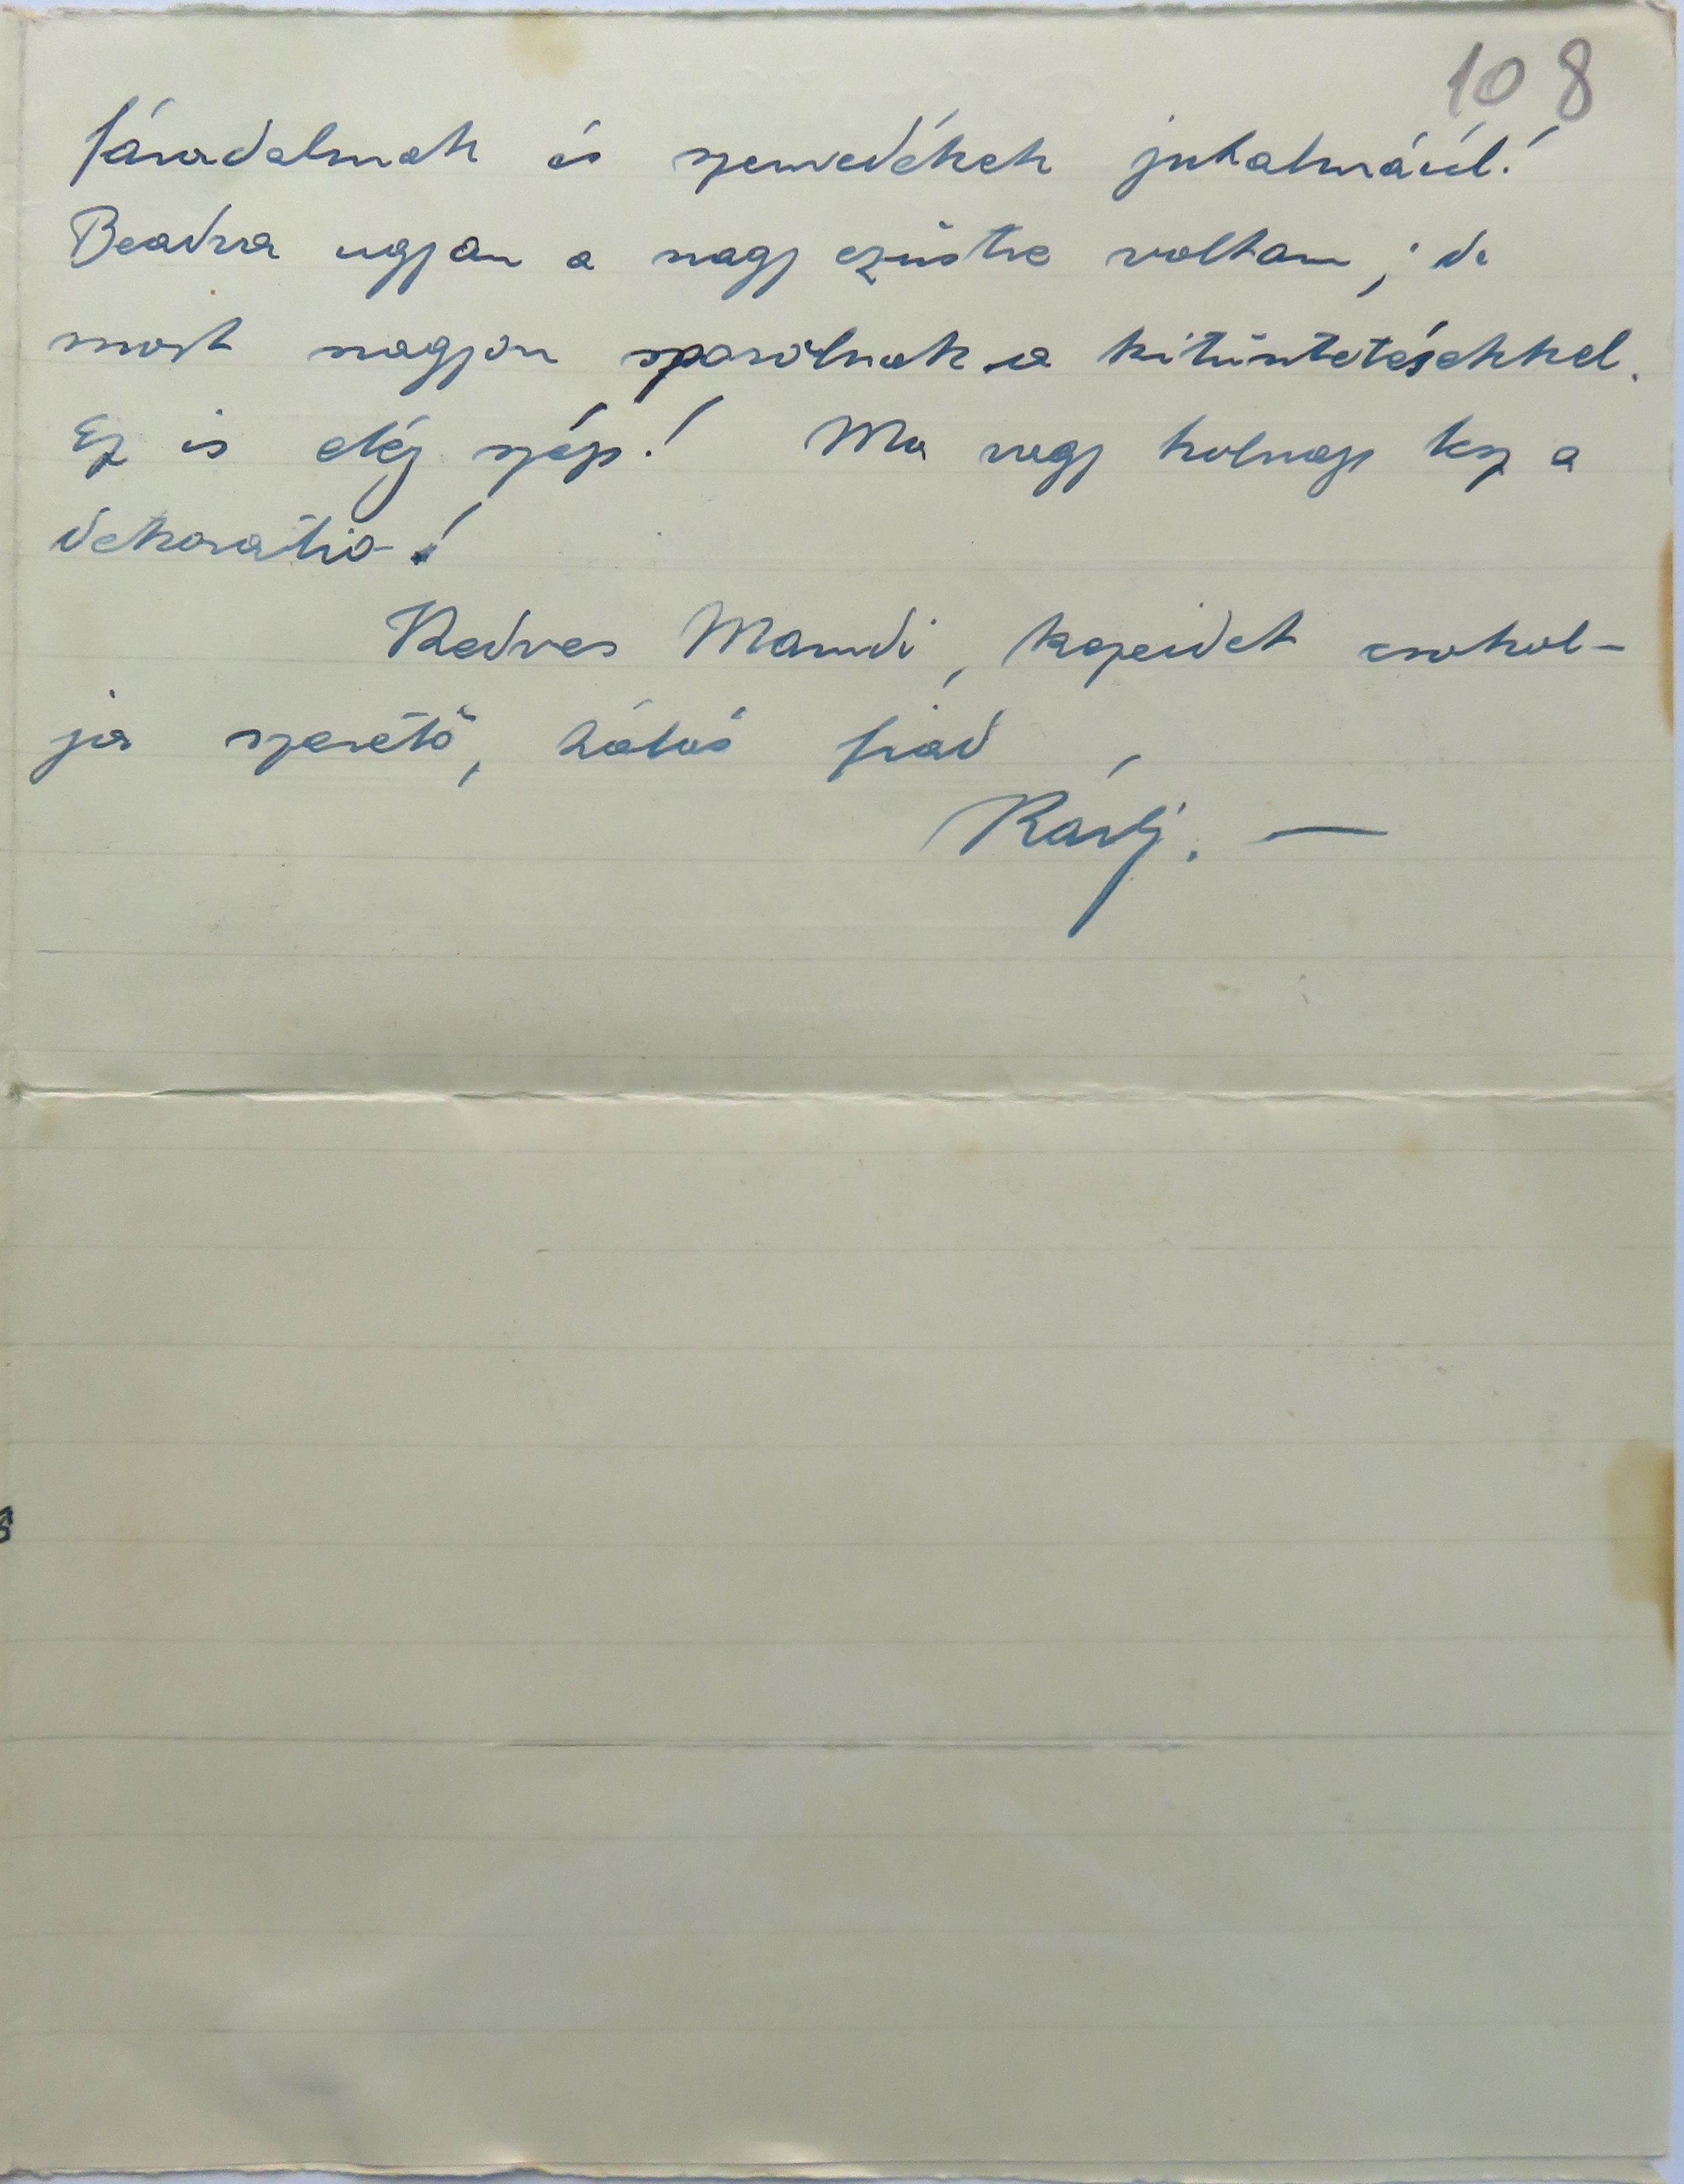 108
fáradalmak és szenvedések jutalmául!
Beadva ugyan a nagy ezüstre voltam; de
most nagyon spórolnak a kitüntetésekkel.
Ez is elég szép! Ma vagy holnap lesz a
dekoratio!
Kedves Mamdi, kezeidet csokol-
ja szerető, hálás fiad,
Károly. —